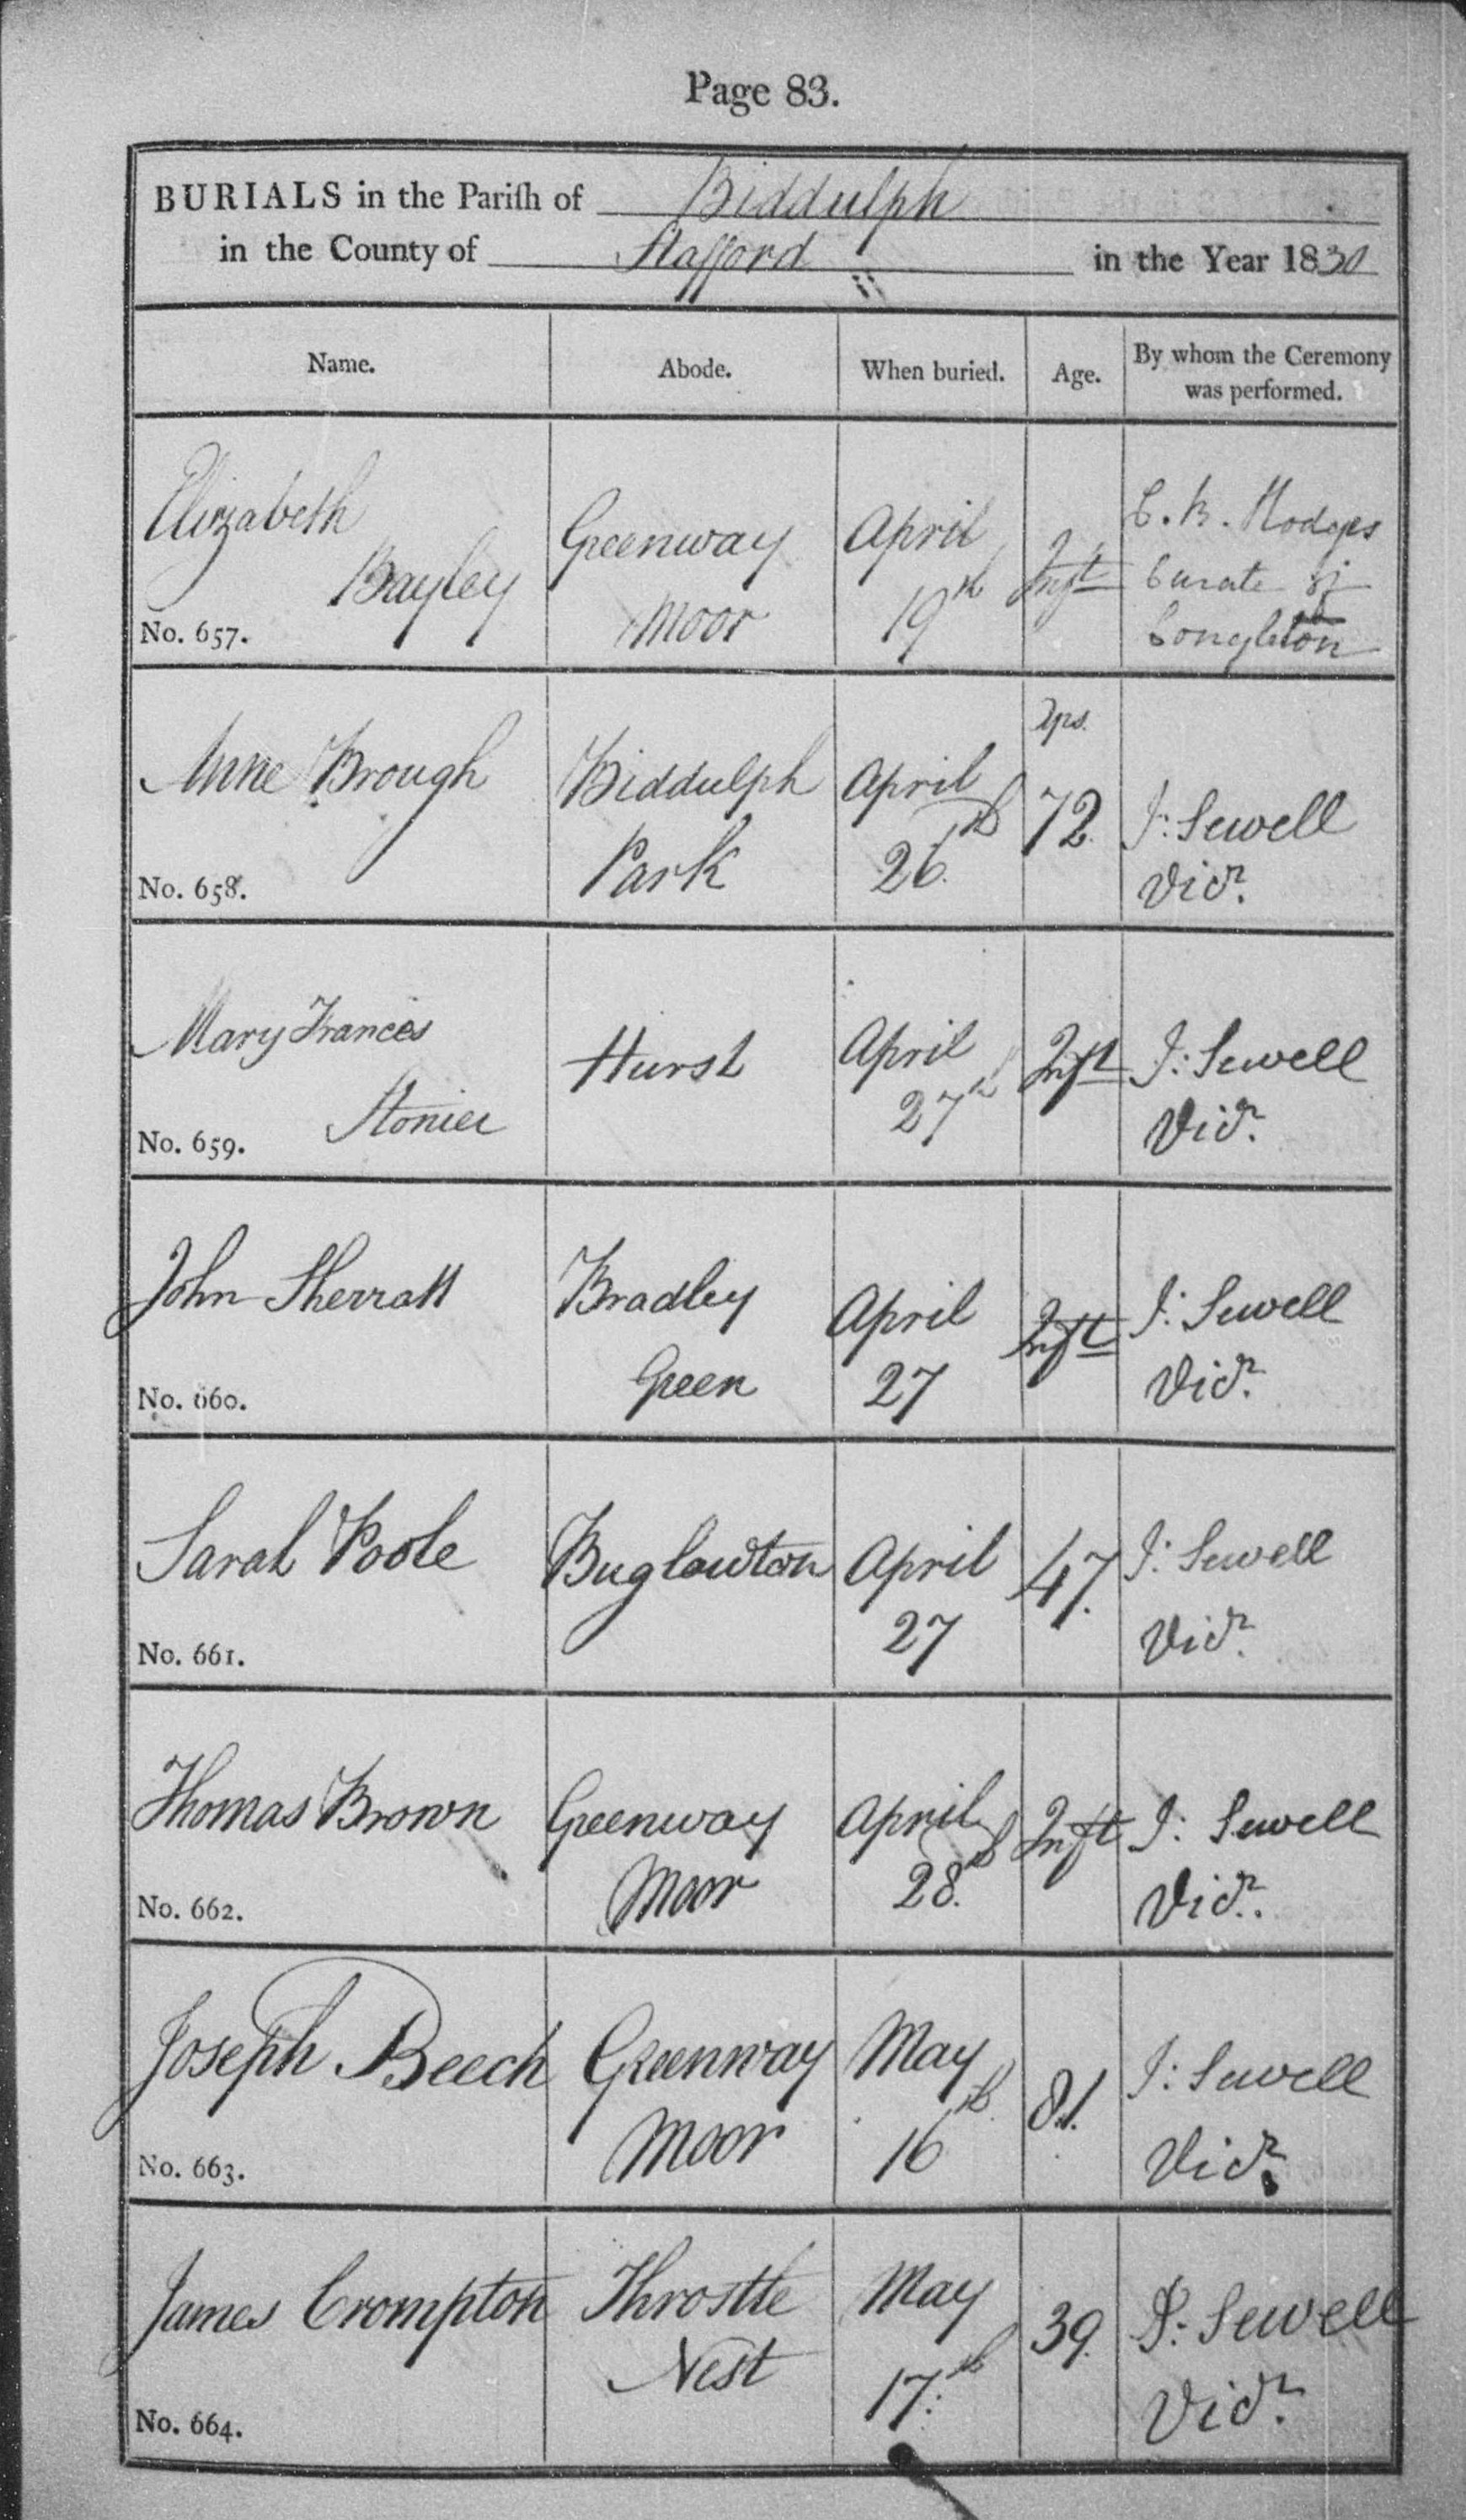 Page 83.
BURIALS in the Pariſh of Biddulph
in the County of Stafford in the Year 1830
Name. Abode. When buried. Age. By whom the Ceremony was performed.
Elizabeth Bayley Greenway Moor April 19th Inft Hodges Curate of Congleton
No. 657.
Anne Brough Biddulph Park April 26th yrs. 72. J: Sewell Vicr.
No. 658.
Mary Frances Stonier Hurst April 27th Inft J: Sewell Vicr.
No. 659.
John Sherratt Bradley Green April 27 Inft J: Sewell Vicr.
No. 660.
Sarah Poole Buglawton April 27 47. J: Sewell Vicr.
No. 661.
Thomas Brown Greenway Moor April 28th Inft J: Sewell Vicr.
No. 662.
Joseph Beech Greenway Moor May 16th 81. J: Sewell Vicr.
No. 663.
James Crompton Throstle Nest May 17th 39. J: Sewell Vicr.
No. 664.